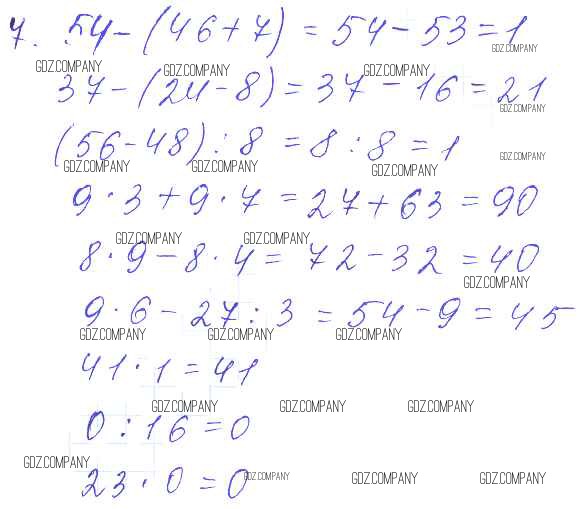 7. 54 - (46 + 7) = 54 - 53 = 1
GDZ.COMPANY
GDZ.COMPANY GDZ.COMPANY GDZ.COMPANY
37 - (24 - 8) = 37 - 16 = 21
GDZ.COMPANY
(56 - 48) : 8 = 8 : 8 = 1
GDZ.COMPANY
GDZ.COMPANY GDZ.COMPANY GDZ.COMPANY
9 · 3 + 9 · 7 = 27 + 63 = 90
GDZ.COMPANY GDZ.COMPANY
8 · 9 - 8 · 4 = 72 - 32 = 40
GDZ.COMPANY
9 · 6 - 27 : 3 = 54 - 9 = 45
GDZ.COMPANY GDZ.COMPANY GDZ.COMPANY
41 · 1 = 41
GDZ.COMPANY GDZ.COMPANY GDZ.COMPANY
0 : 16 = 0
GDZ.COMPANY
23 · 0 = 0
GDZ.COMPANY GDZ.COMPANY GDZ.COMPANY